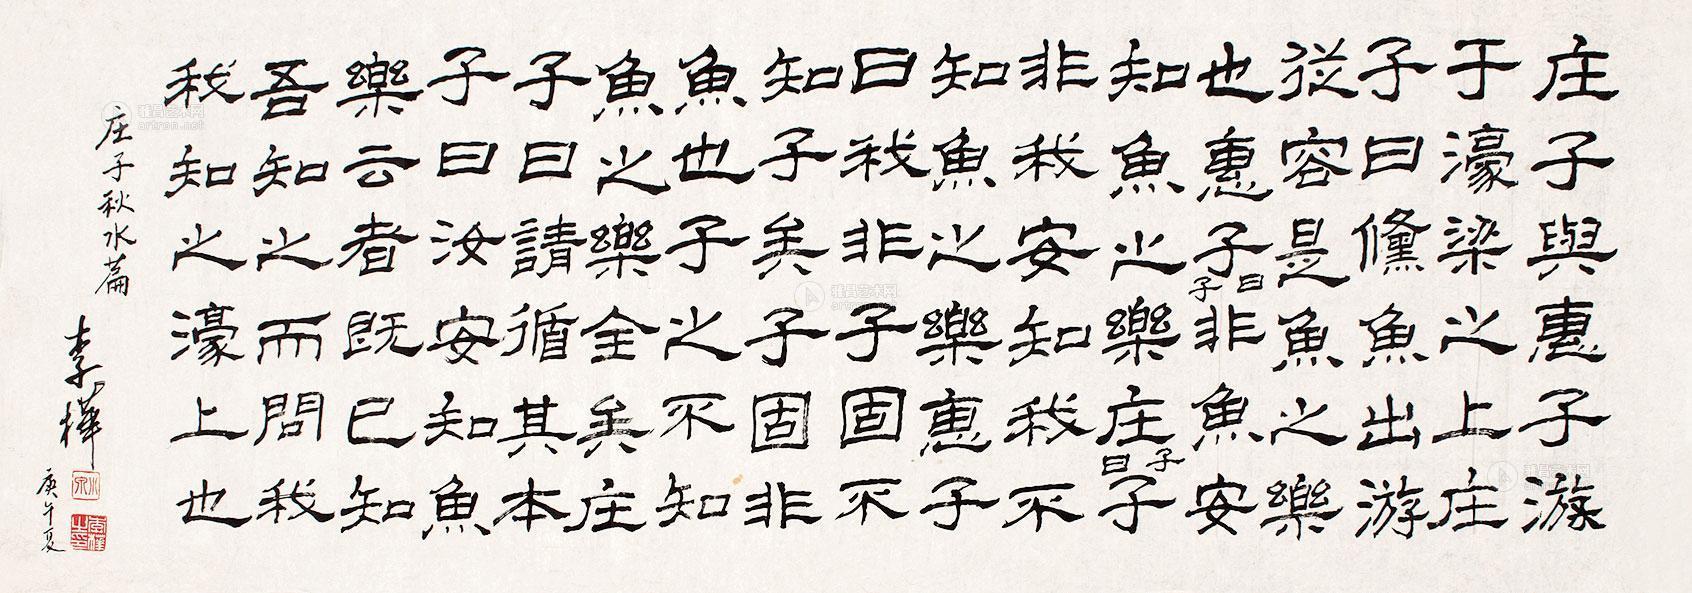 庄子與惠子游
于濠梁之上庄
子曰儵魚出游
從容是魚之樂
也惠子曰子非魚安
知魚之樂庄子曰子
非我安知我不
知魚之樂惠子
曰我非子固不
知子矣子固非
魚也子之不知
魚之樂全矣庄
子曰請循其本
子曰汝安知魚
樂云者既已知
吾知之而問我
我知之濠上也
庄子秋水篇
李樺
庚午夏
雅昌艺术网
artron.net
雅昌艺术网
artron.net
雅昌艺术网
artron.net